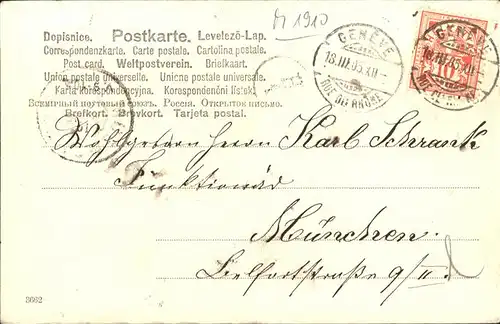 M 1910
Dopisnice. Postkarte. Levelező-Lap.
Correspondenzkarte. Carte postale. Cartolina postale.
Post card. Weltpostverein. Briefkaart.
Union postale universelle. Unione postale universale.
Karta korespondencyjna. Korespondenční lístek.
Всемірный почтовый союзъ. Россія. Открытое письмо.
Brefkort. Brevkort. Tarjeta postal.
GENÈVE
18.III.05.XII
RUE DU RHÔNE
GENÈVE
18.III.05.XII
10
Wohlgeboren Herrn Karl Schrank
Funktionär
München
Belfortstraße 9/II.
3662